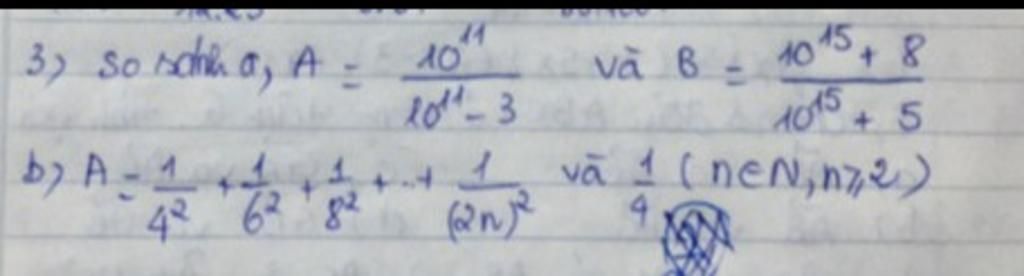 3) So sánh a, A = 10^11 / (10^11 - 3) và B = (10^15 + 8) / (10^15 + 5)
b) A = 1/4² + 1/6² + 1/8² + ... + 1/(2n)² và 1/4 (n∈N, n≥2)